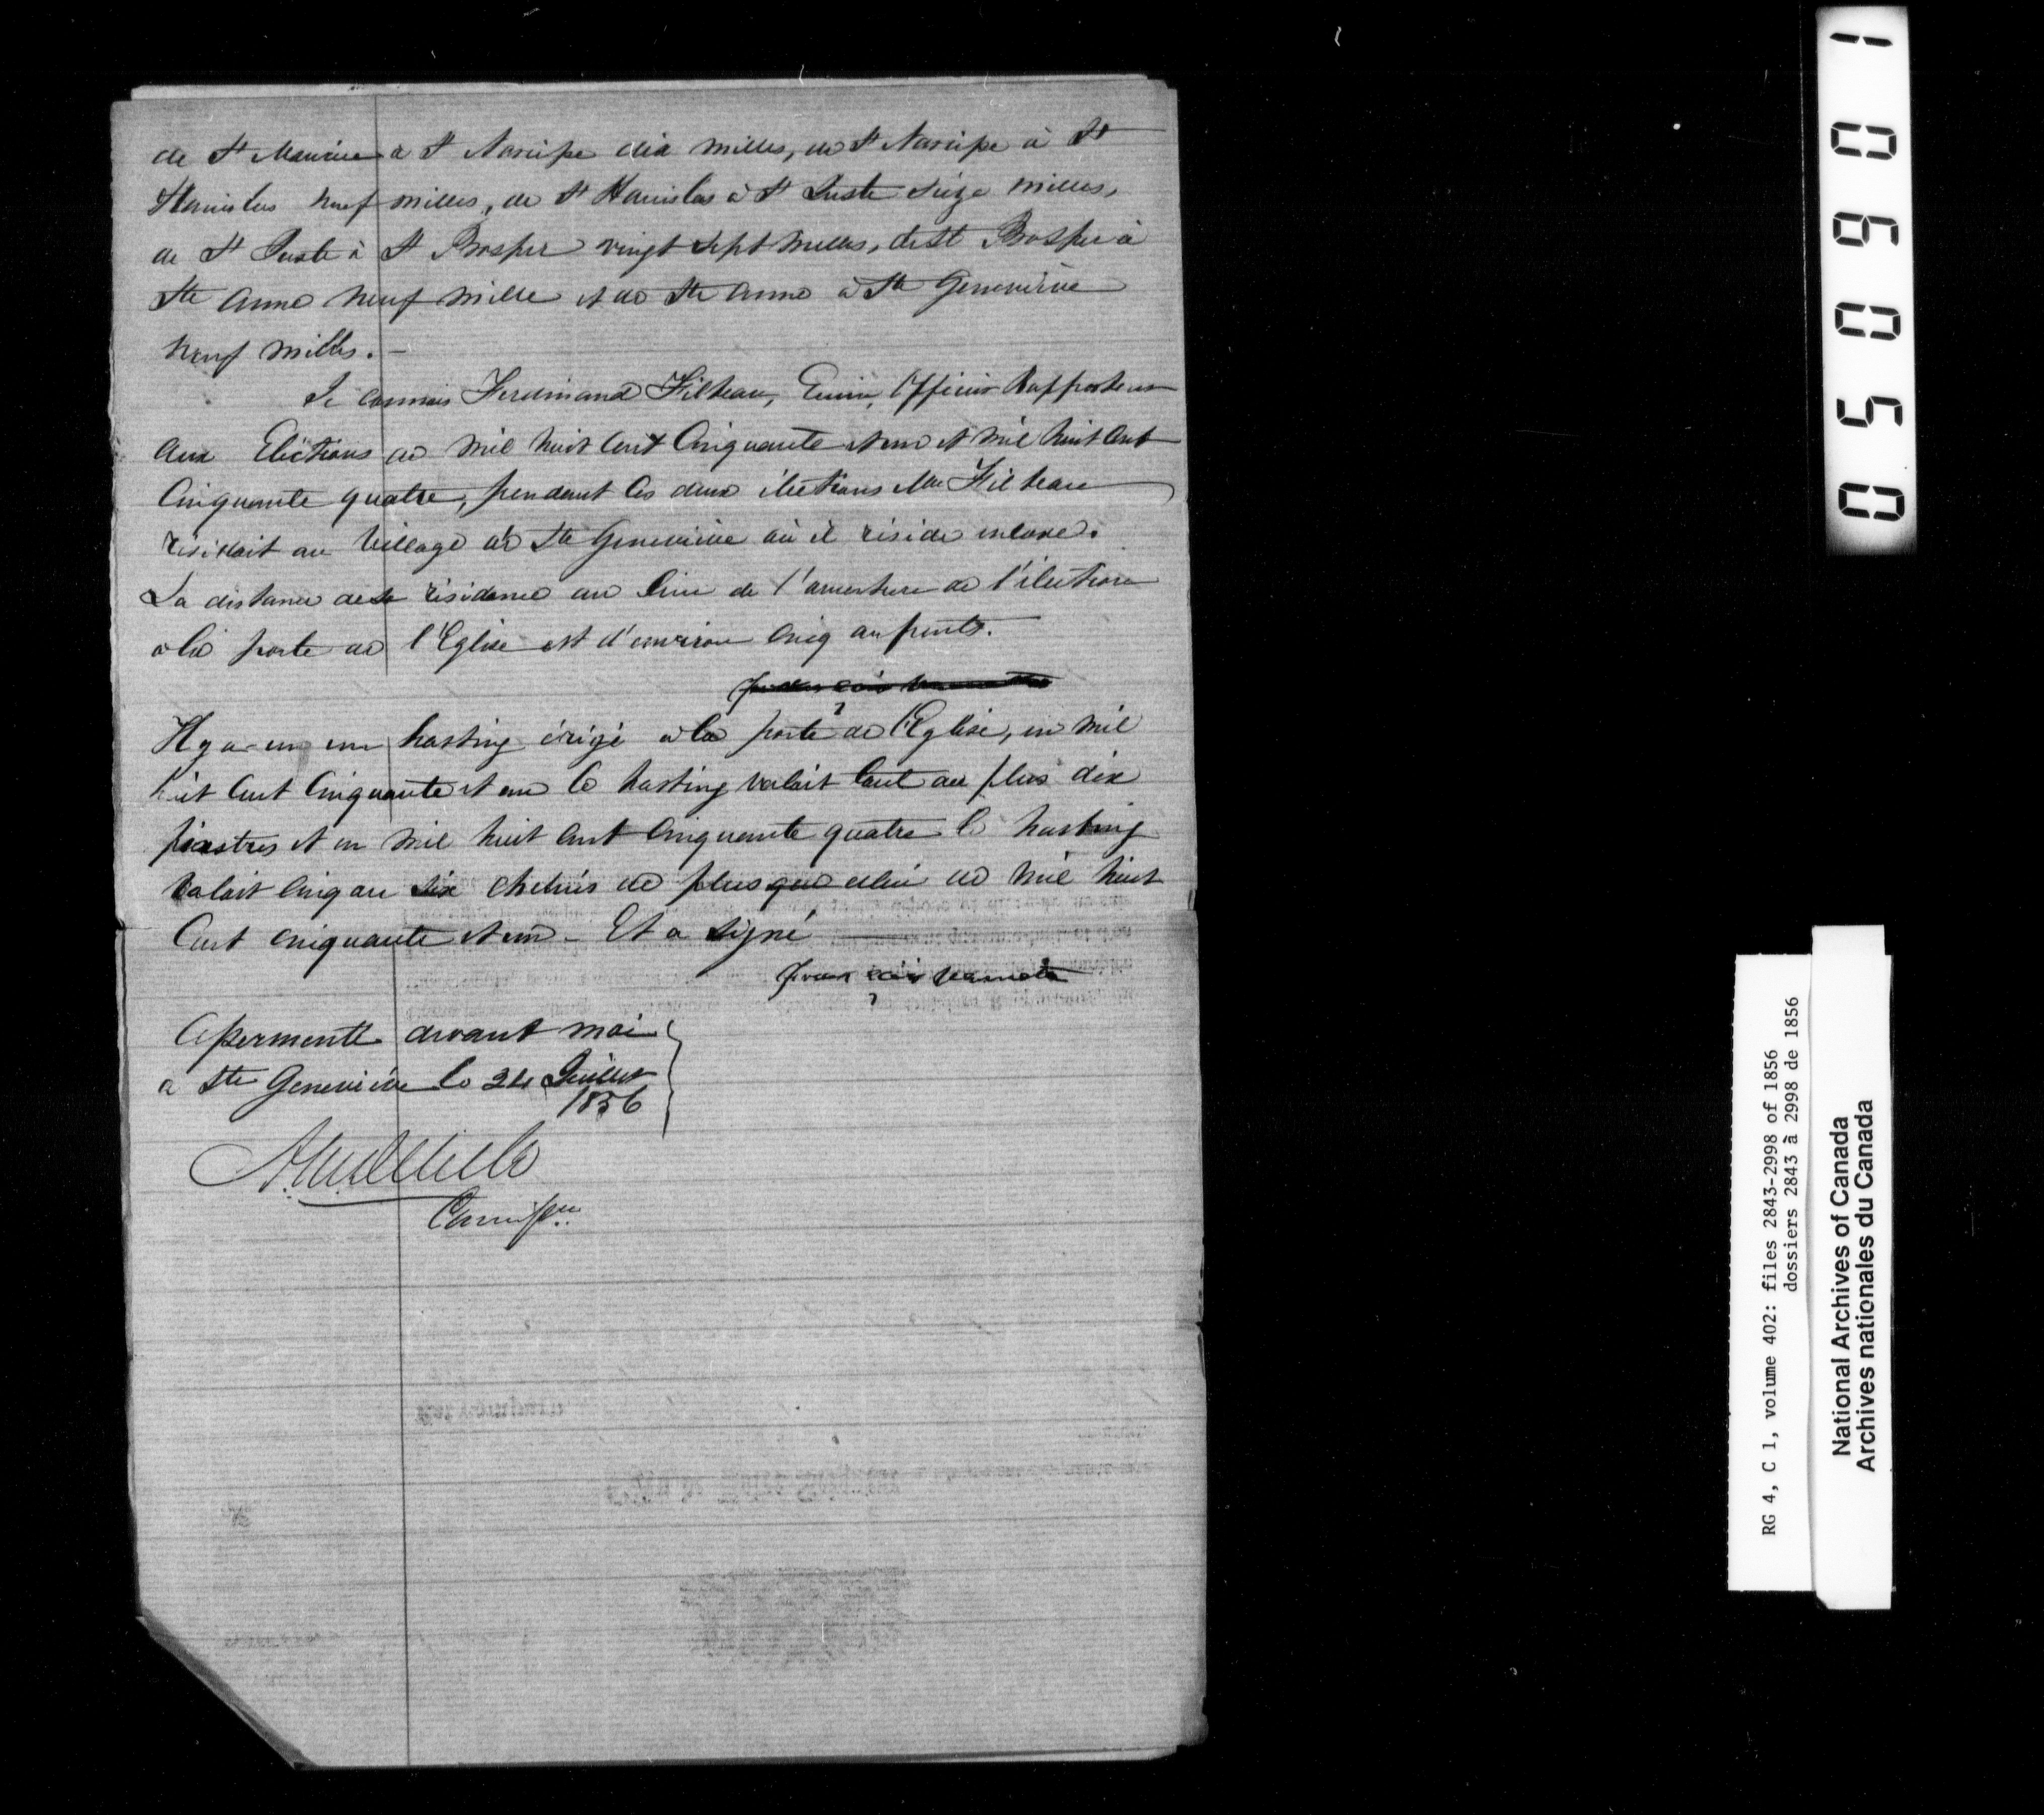 de St Maurice à St Narcisse dix milles, de St Narcisse à St
Stanislas neuf milles, de St Stanislas à St Juste seize milles,
de St Juste à St Prosper vingt sept milles, de St Prosper à
Ste Anne neuf milles et de Ste Anne à Ste Geneviève
neuf milles. —
Je connais Ferdinand Filteau, Ecuier, Officier Rapporteur
aux Elections de mil huit cent cinquante et un et mil huit cent
cinquante quatre, pendant ces deux élections Mr Filteau
résidait au village de Ste Geneviève où il réside encore.
La distance de sa résidence au lieu de l'ouverture de l'élection
à la porte de l'Eglise est d'environ cinq arpents.
Il y a eu un hasting érigé à la porte de l'Eglise, en mil
huit cent cinquante et un le hasting valait tout au plus dix
piastres et en mil huit cent cinquante quatre le hasting
valait cinq ou six chelins de plus que celui de mil huit
cent cinquante et un — Et a signé
françois
Assermenté devant moi
à Ste Geneviève le 24 Juillet
1856
0 5 0 9 0 1
RG 4, C 1, volume 402: files 2843-2998 of 1856
dossiers 2843 à 2998 de 1856
National Archives of Canada
Archives nationales du Canada